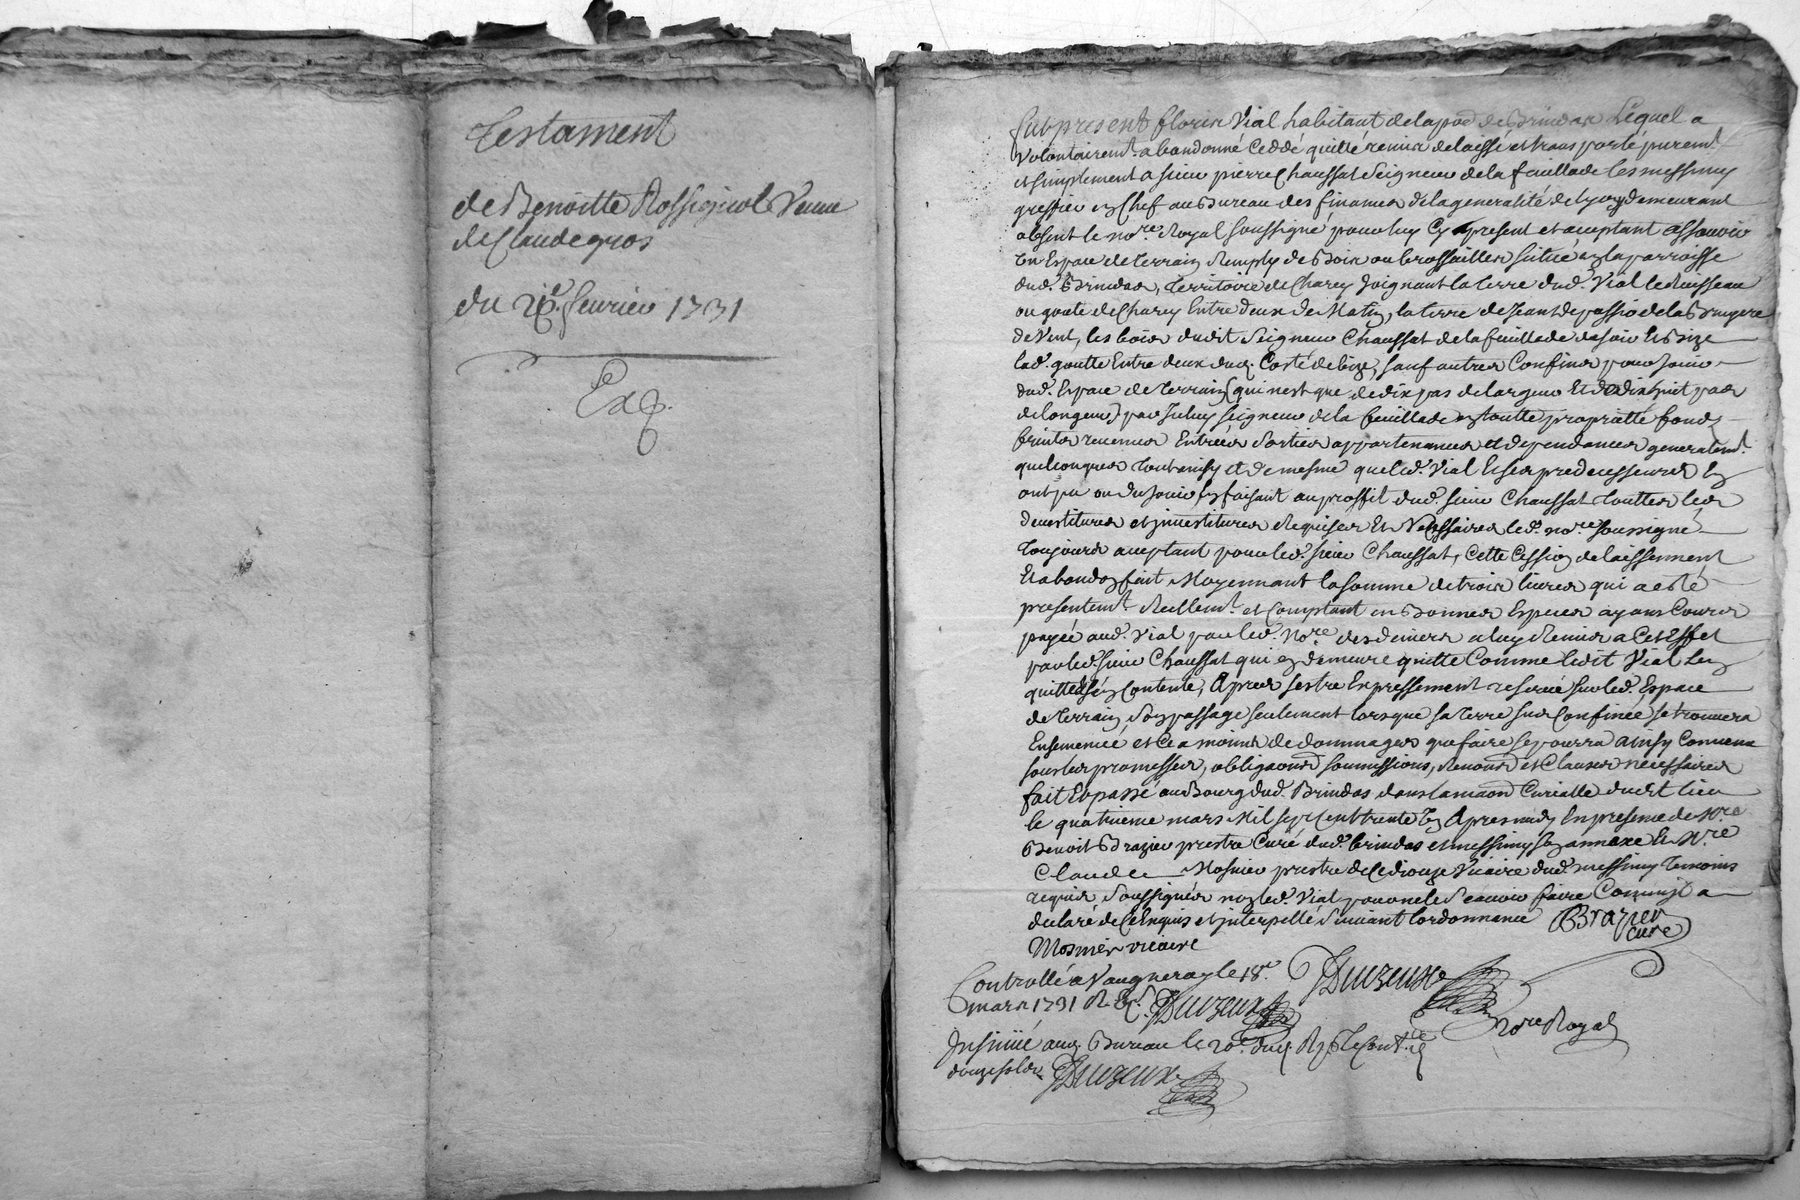 Testament
de Benoitte Rossignol Veuue
de Claude gros
du fevrier 1731
Exp.
fut present florin Vial habitant de la par. de Brindas Lequel a
Volontairemt. abandonné Ceddé quitté remis delaissé et transporté puremt.
et simplement a sieur pierre Chaussat Seigneur de la feuillade les messimy
greffier en Chef au Bureau des finances de la generalité de Lyon y demeurant
absent le nore. Royal soussigné pour luy Cy present et aceptant assauoir
Un Espace de terrain Remply de Bois ou brossailles situé en la parroisse
dud. Brindas, Territoire de Charey Joignant la terre dud. Vial le Ruisseau
ou goute de Charey Entre deux de Matin, la terre de Jeant de la Bruyere
de Vent, les bois dudit Seigneur Chaussat de la feuillade de soir Et Bize
lad. goutte Entre deux dud. Costé de bize, sauf autres Confins pour Jouir
dud. Espace de terrain (qui nest que de dix pas de largeur Et de dix huit pas
de longeur) par Iceluy seigneur de la feuillade en toutte proprietté fonds
fruits reuenus Entrées Sorties appartenances et dependances generalemt.
quelconques tout ainsy et de mesme que led. Vial Et ses predecesseurs En
ont pu ou du Jouir, En faisant au proffit dud. sieur Chaussat Touttes les
deuestitures et jnuestitures Requises Et Nécessaires led. nore. soussigné
Toujours aceptant pour led. sieur Chaussat, Cette Cession delaissement
Et abandon fait Moyennant la somme de trois liures qui a esté
presentemt. Reellemt. et Comptant en Bonnes Especes ayans Cours
payée aud. Vial par led. Nore. des deniers a luy Remis a Cet Effet
par led. sieur Chaussat qui en demeure quitte Comme ledit Vial Len
quitte sen Contente, Apres sestre Expressement reserué sur led. Espace
de terrain Son passage seulement lorsque sa terre sus Confinée se trouuera
Ensemencé et Ce a moins de dommages que faire se pourra ainsy Conuenu
sous les promesses, obligaons. soumissions, Renons. et Clauses nécessaires
fait Et passé au Bourg dud. Brindas dans la maon. Curialle dudit lieu
le quatrieme mars Mil sept Cent trente Un Apres midy En presence de Mre.
Benoit Brazier prestre Curé dud. brindas et messimy son annexe Et Mre.
Claude Mosnier prestre Vicaire dud. messimy Temoins
requis Soussignés non led. Vial pour ne le Scauoir faire Comme jl a
declaré de Ce Enquis et jnterpellé Suiuant lordonnance Brazier
curé
Mosnier vicaire
Controllé a Vaugneray le 18e.
mars 1731 R.
nore Royal
Insinué aud. Bureau le 20e. dud.
douze sols